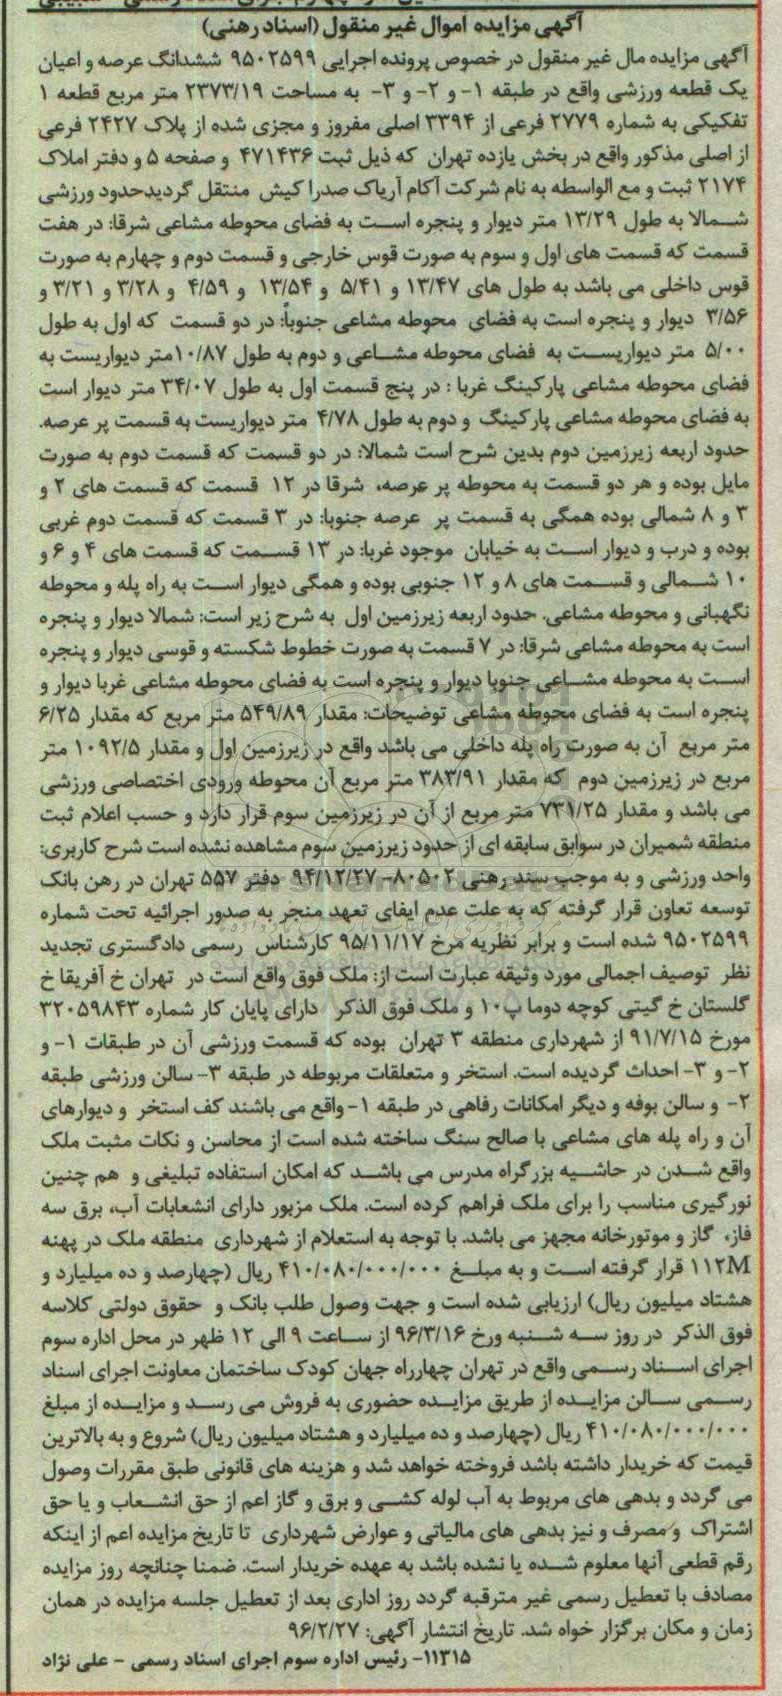 آگهی مزایده اموال غیر منقول (اسناد رهنی)
آگهی مزایده مال غیر منقول در خصوص پرونده اجرایی ۹۵۰۲۵۹۹ ششدانگ عرصه و اعیان
یک قطعه ورزشی واقع در طبقه ۱- و ۲- و ۳- به مساحت ۲۳۷۳/۱۹ متر مربع قطعه ۱
تفکیکی به شماره ۲۷۷۹ فرعی از ۳۳۹۴ اصلی مفروز و مجزی شده از پلاک ۲۴۲۷ فرعی
از اصلی مذکور واقع در بخش یازده تهران که ذیل ثبت ۴۷۱۴۳۶ و صفحه ۵ و دفتر املاک
۲۱۷۴ ثبت و مع الواسطه به نام شرکت آکام آریاک صدرا کیش منتقل گردیدحدود ورزشی
شمالا به طول ۱۳/۲۹ متر دیوار و پنجره است به فضای محوطه مشاعی شرقا: در هفت
قسمت که قسمت های اول و سوم به صورت قوس خارجی و قسمت دوم و چهارم به صورت
قوس داخلی می باشد به طول های ۱۳/۴۷ و ۵/۴۱ و ۱۳/۵۴ و ۴/۵۹ و ۳/۲۸ و ۳/۲۱ و
۳/۵۶ دیوار و پنجره است به فضای محوطه مشاعی جنوباً: در دو قسمت که اول به طول
۵/۰۰ متر دیواریست به فضای محوطه مشاعی و دوم به طول ۱۰/۸۷متر دیواریست به
فضای محوطه مشاعی پارکینگ غربا : در پنج قسمت اول به طول ۳۴/۰۷ متر دیوار است
به فضای محوطه مشاعی پارکینگ و دوم به طول ۴/۷۸ متر دیواریست به قسمت پر عرصه.
حدود اربعه زیرزمین دوم بدین شرح است شمالا: در دو قسمت که قسمت دوم به صورت
مایل بوده و هر دو قسمت به محوطه پر عرصه، شرقا در ۱۲ قسمت که قسمت های ۲ و
۳ و ۸ شمالی بوده همگی به قسمت پر عرصه جنوبا: در ۳ قسمت که قسمت دوم غربی
بوده و درب و دیوار است به خیابان موجود غربا: در ۱۳ قسمت که قسمت های ۴ و ۶ و
۱۰ شمالی و قسمت های ۸ و ۱۲ جنوبی بوده و همگی دیوار است به راه پله و محوطه
نگهبانی و محوطه مشاعی. حدود اربعه زیرزمین اول به شرح زیر است: شمالا دیوار و پنجره
است به محوطه مشاعی شرقا: در ۷ قسمت به صورت خطوط شکسته و قوسی دیوار و پنجره
است به محوطه مشاعی جنوبا دیوار و پنجره است به فضای محوطه مشاعی غربا دیوار و
پنجره است به فضای محوطه مشاعی توضیحات: مقدار ۵۴۹/۸۹ متر مربع که مقدار ۶/۲۵
متر مربع آن به صورت راه پله داخلی می باشد واقع در زیرزمین اول و مقدار ۱۰۹۲/۵ متر
مربع در زیرزمین دوم که مقدار ۳۸۳/۹۱ متر مربع آن محوطه ورودی اختصاصی ورزشی
می باشد و مقدار ۷۳۱/۲۵ متر مربع از آن در زیرزمین سوم قرار دارد و حسب اعلام ثبت
منطقه شمیران در سوابق سابقه ای از حدود زیرزمین سوم مشاهده نشده است شرح کاربری:
واحد ورزشی و به موجب سند رهنی ۸۰۵۰۲- ۹۴/۱۲/۲۷ دفتر ۵۵۷ تهران در رهن بانک
توسعه تعاون قرار گرفته که به علت عدم ایفای تعهد منجر به صدور اجرائیه تحت شماره
۹۵۰۲۵۹۹ شده است و برابر نظریه مرخ ۹۵/۱۱/۱۷ کارشناس رسمی دادگستری تجدید
نظر توصیف اجمالی مورد وثیقه عبارت است از: ملک فوق واقع است در تهران خ آفریقا خ
گلستان خ گیتی کوچه دوما پ۱۰ و ملک فوق الذکر دارای پایان کار شماره ۳۲۰۵۹۸۴۳
مورخ ۹۱/۷/۱۵ از شهرداری منطقه ۳ تهران بوده که قسمت ورزشی آن در طبقات ۱- و
۲- و ۳- احداث گردیده است. استخر و متعلقات مربوطه در طبقه ۳- سالن ورزشی طبقه
۲- و سالن بوفه و دیگر امکانات رفاهی در طبقه ۱- واقع می باشند کف استخر و دیوارهای
آن و راه پله های مشاعی با صالح سنگ ساخته شده است از محاسن و نکات مثبت ملک
واقع شدن در حاشیه بزرگراه مدرس می باشد که امکان استفاده تبلیغی و هم چنین
نورگیری مناسب را برای ملک فراهم کرده است. ملک مزبور دارای انشعابات آب، برق سه
فاز، گاز و موتورخانه مجهز می باشد. با توجه به استعلام از شهرداری منطقه ملک در پهنه
۱۱۲M قرار گرفته است و به مبلغ ۴۱۰/۰۸۰/۰۰۰/۰۰۰ ریال (چهارصد و ده میلیارد و
هشتاد میلیون ریال) ارزیابی شده است و جهت وصول طلب بانک و حقوق دولتی کلاسه
فوق الذکر در روز سه شنبه ورخ ۹۶/۳/۱۶ از ساعت ۹ الی ۱۲ ظهر در محل اداره سوم
اجرای اسناد رسمی واقع در تهران چهارراه جهان کودک ساختمان معاونت اجرای اسناد
رسمی سالن مزایده از طریق مزایده حضوری به فروش می رسد و مزایده از مبلغ
۴۱۰/۰۸۰/۰۰۰/۰۰۰ ریال (چهارصد و ده میلیارد و هشتاد میلیون ریال) شروع و به بالاترین
قیمت که خریدار داشته باشد فروخته خواهد شد و هزینه های قانونی طبق مقررات وصول
می گردد و بدهی های مربوط به آب لوله کشی و برق و گاز اعم از حق انشعاب و یا حق
اشتراک و مصرف و نیز بدهی های مالیاتی و عوارض شهرداری تا تاریخ مزایده اعم از اینکه
رقم قطعی آنها معلوم شده یا نشده باشد به عهده خریدار است. ضمنا چنانچه روز مزایده
مصادف با تعطیل رسمی غیر مترقبه گردد روز اداری بعد از تعطیل جلسه مزایده در همان
زمان و مکان برگزار خواه شد. تاریخ انتشار آگهی: ۹۶/۲/۲۷
۱۱۳۱۵- رئیس اداره سوم اجرای اسناد رسمی - علی نژاد